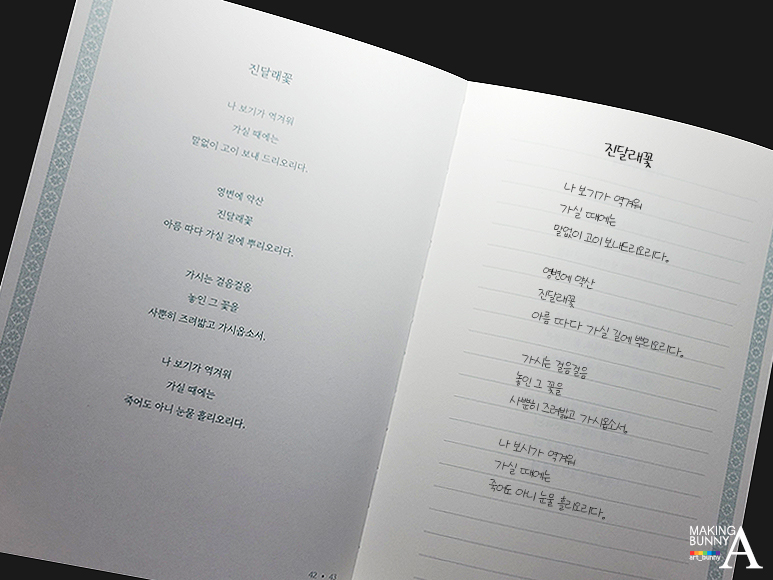 진달래꽃
나 보기가 역겨워
가실 때에는
말없이 고이 보내 드리오리다.
영변에 약산
진달래꽃
아름 따다 가실 길에 뿌리오리다.
가시는 걸음걸음
놓인 그 꽃을
사뿐히 즈려밟고 가시옵소서.
나 보기가 역겨워
가실 때에는
죽어도 아니 눈물 흘리오리다.
42 • 43
진달래꽃
나 보기가 역겨워
가실 때에는
말없이 고이 보내드리오리다.
영변에 약산
진달래꽃
아름 따다 가실 길에 뿌리오리다.
가시는 걸음걸음
놓인 그 꽃을
사뿐히 즈려밟고 가시옵소서.
나 보시가 역겨워
가실 때에는
죽어도 아니 눈물 흘리오리다.
MAKING
BUNNY
art_bunny
A